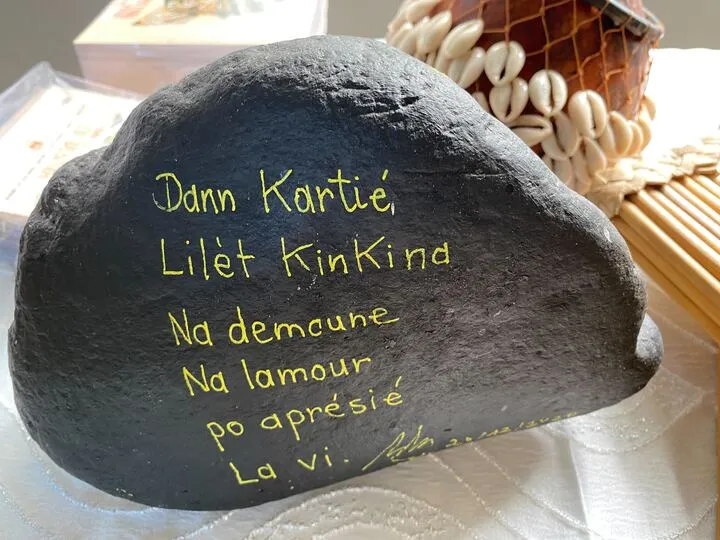 Dann Kartié
Lilèt KinKind
Na demoune
Na lamour
po aprésié
La vi.